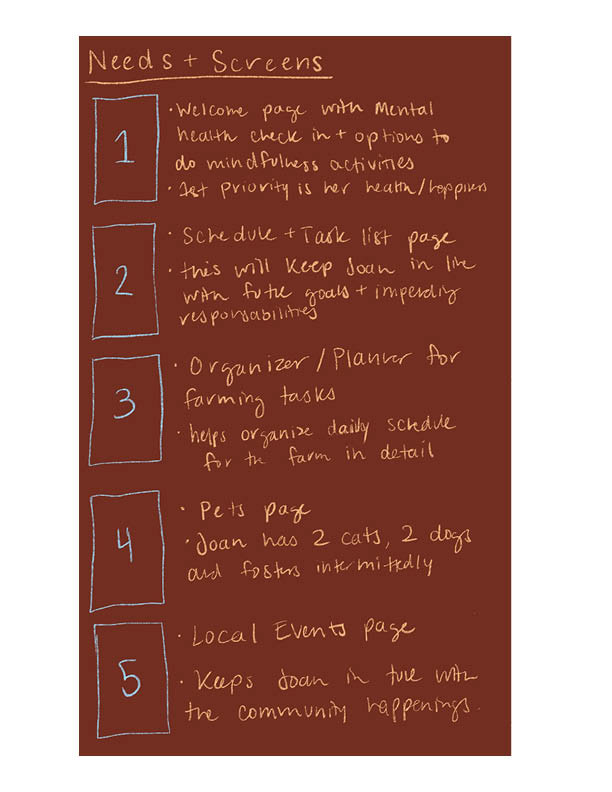 Needs + Screens
1
• Welcome page with Mental
health check in + options to
do mindfulness activities
• 1st priority is her health/happiness
2
• Schedule + Task list page
• this will keep Joan in line
with future goals + impending
responsabilities
3
• Organizer / Planner for
farming tasks
• helps organize daily schedule
for the farm in detail
4
• Pets page
• Joan has 2 cats, 2 dogs
and fosters intermittedly
5
• Local Events page
• Keeps Joan in tune with
the community happenings.